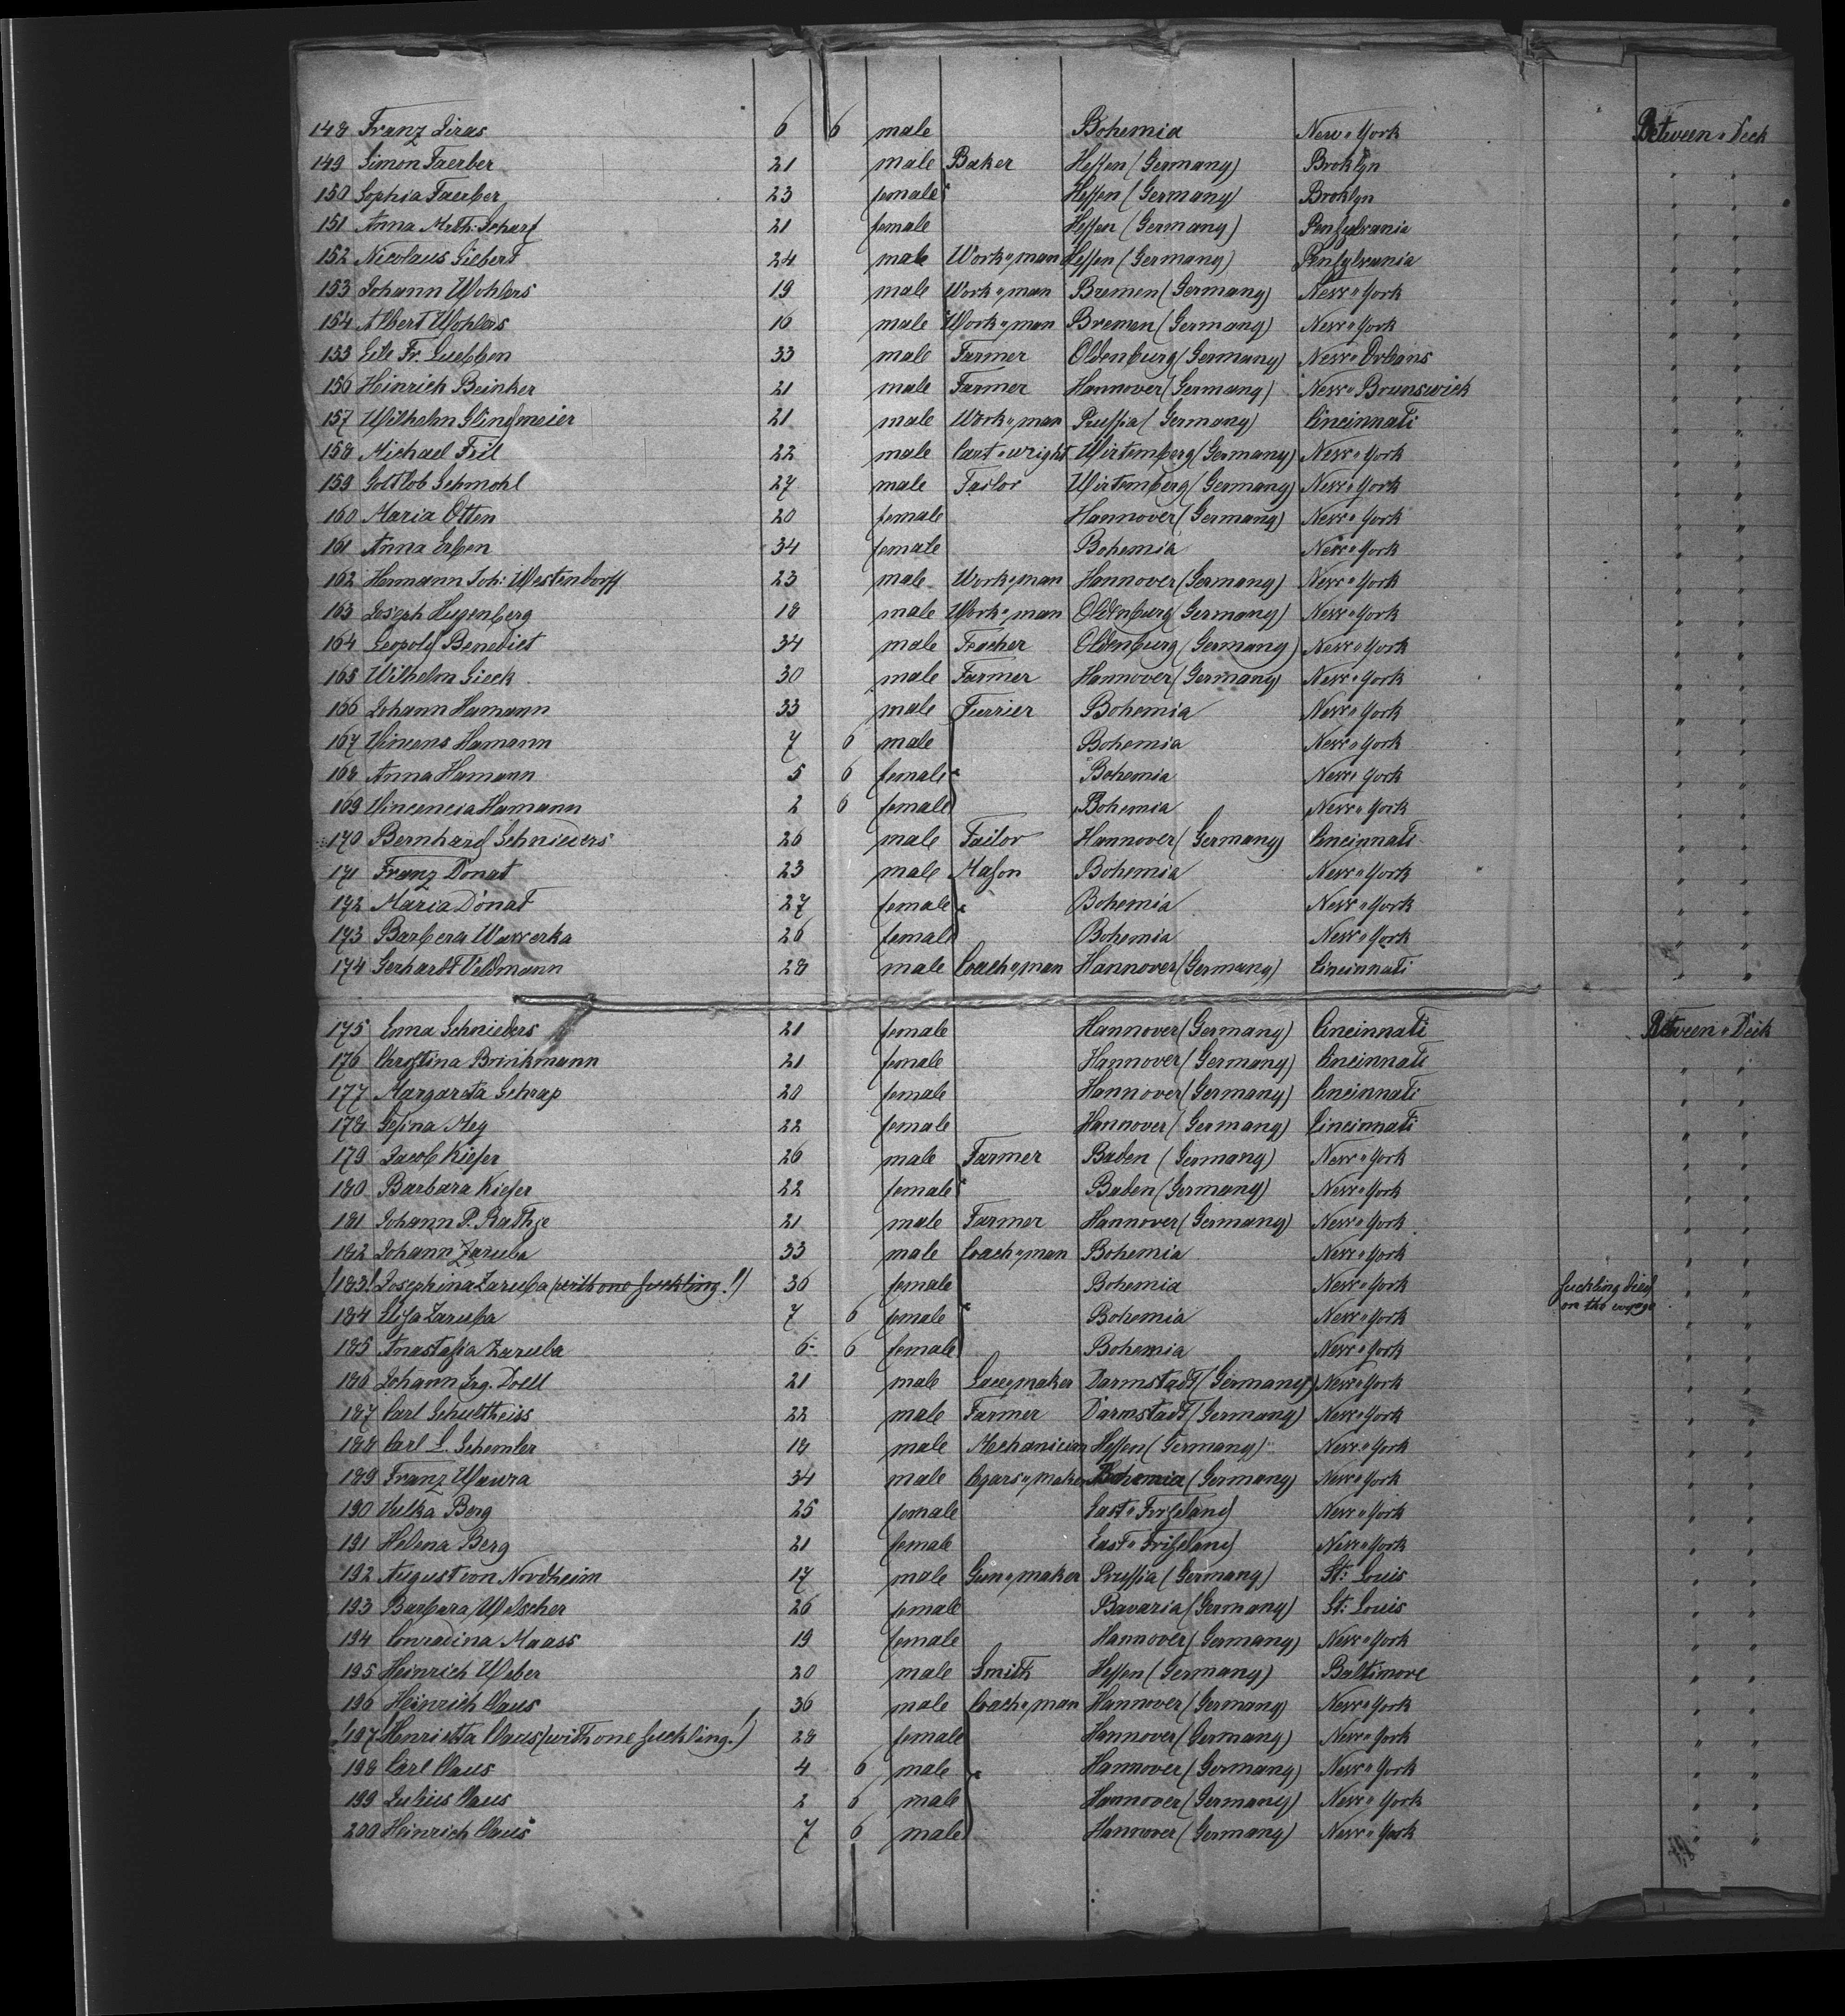 148 Franz Liras 6 6 male Bohemia New-York Between-Deck
149 Simon Faerber 21 male Baker Hessen (Germany) Broklyn " "
150 Sophia Faerber 23 female Hessen (Germany) Broklyn " "
151 Anna Meth: Scharf 21 female Hessen (Germany) Pensylvania " "
152 Nicolaus Siebert 24 male Work-man Hessen (Germany) Pensylvania " "
153 Johann Wohlers 19 male Work-man Bremen (Germany) New-York " "
154 Albert Wohlers 16 male Work-man Bremen (Germany) New-York " "
155 Eile Fr. Luebben 33 male Farmer Oldenburg (Germany) New-Orleans " "
156 Heinrich Beinker 21 male Farmer Hannover (Germany) New-Brunswick " "
157 Wilhelm Klingmeier 21 male Work-man Prussia (Germany) Cincinnati " "
158 Michael Fril 22 male Cart-wright Wirtemberg (Germany) New-York " "
159 Gottlob Schmohl 27 male Tailor Wirtemberg (Germany) New-York " "
160 Maria Otten 20 female Hannover (Germany) New-York " "
161 Anna Erben 34 female Bohemia New-York " "
162 Hermann Joh: Westendorff 23 male Work-man Hannover (Germany) New-York " "
163 Joseph Hugenberg 18 male Work-man Oldenburg (Germany) New-York " "
164 Leopold Benedict 34 male Teacher Oldenburg (Germany) New-York " "
165 Wilhelm Sieck 30 male Farmer Hannover (Germany) New-York " "
166 Johann Hamann 33 male Furrier Bohemia New-York " "
167 Vincens Hamann 7 6 male Bohemia New-York " "
168 Anna Hamann 5 6 female Bohemia New-York " "
169 Vincencia Hamann 2 6 female Bohemia New-York " "
170 Bernhard Schnieders 26 male Tailor Hannover (Germany) Cincinnati " "
171 Franz Donat 23 male Mason Bohemia New-York " "
172 Maria Donat 27 female Bohemia New-York " "
173 Barbera Wawerka 26 female Bohemia New-York " "
174 Gerhardt Veldmann 28 male Coach-man Hannover (Germany) Cincinnati " "
175 Enna Schnieders 21 female Hannover (Germany) Cincinnati Between-Deck
176 Christina Brinkmann 21 female Hannover (Germany) Cincinnati " "
177 Margareta Schrap 20 female Hannover (Germany) Cincinnati " "
178 Gesina Mey 22 female Hannover (Germany) Cincinnati " "
179 Jacob Kiefer 26 male Farmer Baden (Germany) New-York " "
180 Barbara Kiefer 22 female Baden (Germany) New-York " "
181 Johann P. Rathje 21 male Farmer Hannover (Germany) New-York " "
182 Johann Zaruba 33 male Coach-man Bohemia New-York " "
(183! Josephina Zaruba (with one suckling!) 36 female Bohemia New-York suckling died on the voyage " "
184 Elisa Zaruba 7 6 female Bohemia New-York " "
185 Anastasia Zaruba 6 6 female Bohemia New-York " "
186 Johann Grg. Doell 21 male Lacemaker Darmstadt (Germany) New-York " "
187 Carl Schultheiss 22 male Farmer Darmstadt (Germany) New-York " "
188 Carl L. Schemler 18 male Mechanician Hessen (Germany) New-York " "
189 Franz Wawra 34 male Cigars-maker Bohemia (Germany) New-York " "
190 Vulka Berg 25 female East-Friseland New-York " "
191 Helena Berg 21 female East-Friseland New-York " "
192 August von Nordheim 17 male Gun-maker Prussia (Germany) St: Louis " "
193 Barbara Welscher 26 female Bavaria (Germany) St: Louis " "
194 Conradina Maass 19 female Hannover (Germany) New-York " "
195 Heinrich Weber 20 male Smith Hessen (Germany) Baltimore " "
196 Heinrich Claus 36 male Coach-man Hannover (Germany) New-York " "
(197! Henrietta Claus (with one suckling!) 28 female Hannover (Germany) New-York " "
198 Carl Claus 4 6 male Hannover (Germany) New-York " "
199 Julius Claus 2 6 male Hannover (Germany) New-York " "
200 Heinrich Claus 7 6 male Hannover (Germany) New-York " "